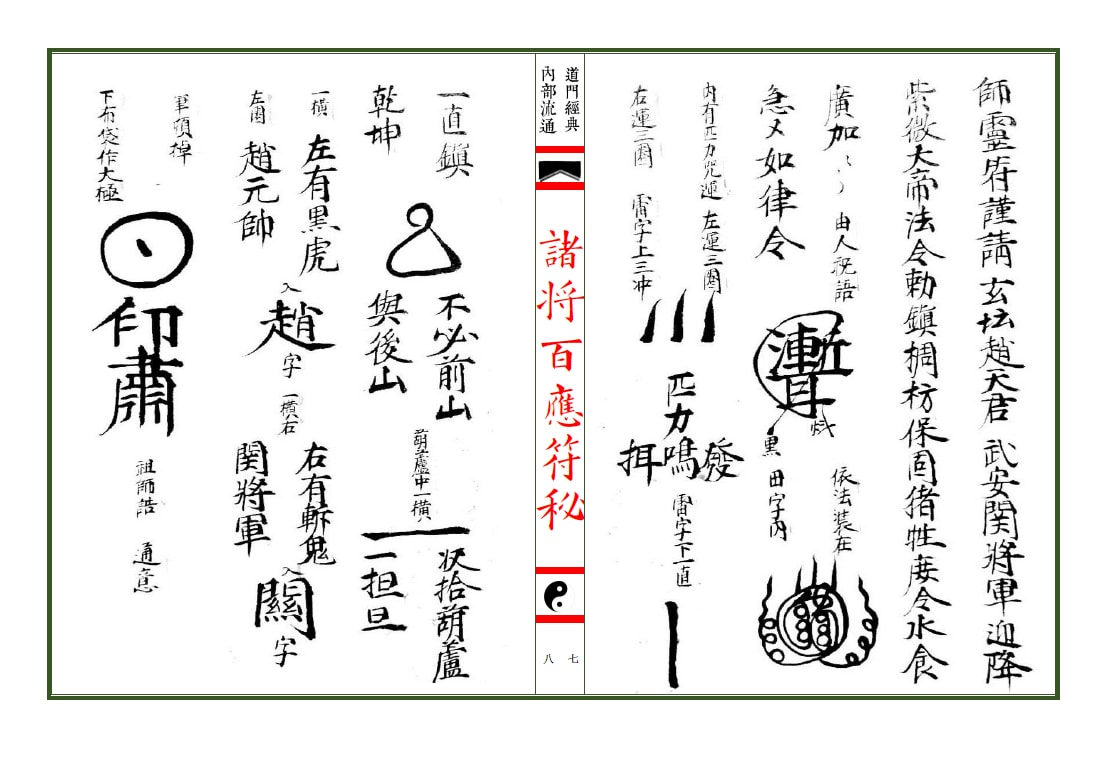 師靈符謹請玄坛趙天君武安関將軍迎降
紫微大帝法令勅鎮棡枋保固猪牲度令水食
廣加
由人祝語
急又如律令
黑
田字內
依法裝在
內有匹力咒運左運三圈
右運三圈
雷字上三冲
匹力
鳴
雷字下一直
道門經典
內部流通
諸將百應符秘
七
八
一直鎮
乾坤
不必前山
與後山
葫蘆中一橫
收拾葫蘆
一担旦
一橫
左有黑虎
左圈
趙元帥
入
趙
字
一橫右
右有斬鬼
関將軍
入
關
字
軍頭掉
下布袋作太極
印
肅
祖師誥
通意